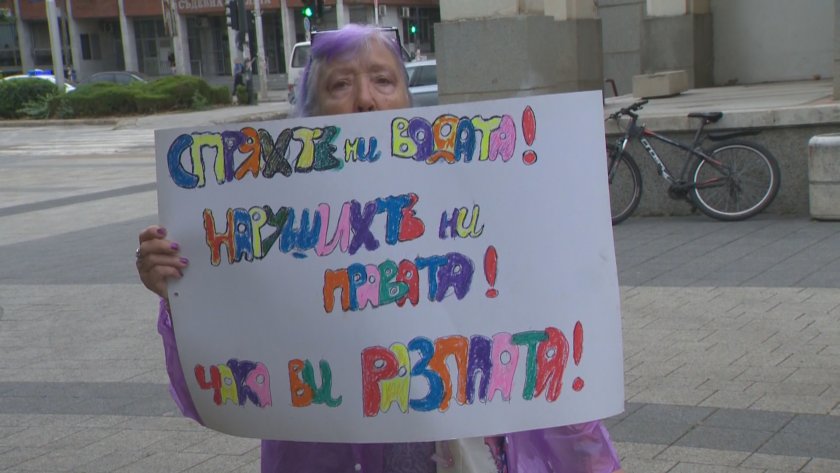 СЪДЕБНА ПАЛАТА
СПРЯХТЕ НИ ВОДАТА!
НАРУШИХТЕ НИ
ПРАВАТА!
ЧАКА ВИ РАЗПЛАТА!